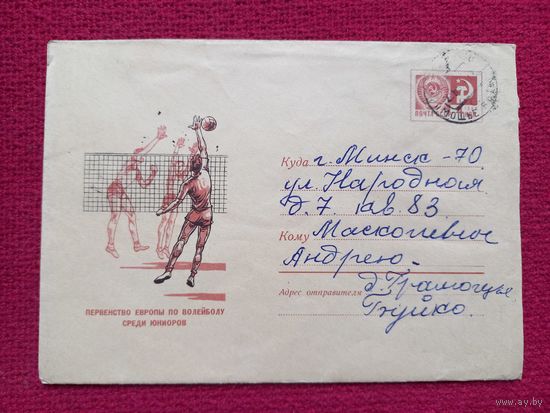 ПОЧТА
Куда г. Минск-70
ул. Народная
д. 7. кв. 83
Кому
Андрею.
Адрес отправителя
ПЕРВЕНСТВО ЕВРОПЫ ПО ВОЛЕЙБОЛУ
СРЕДИ ЮНИОРОВ
www.ay.by